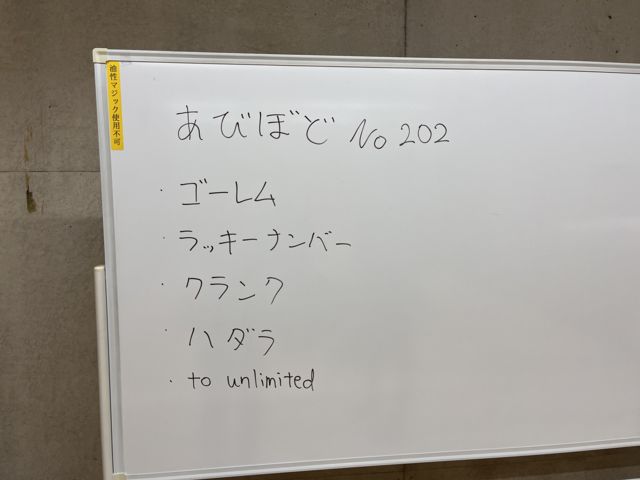 油性マジック使用不可
あびぼど No 202
・ゴーレム
・ラッキーナンバー
・クランク
・ハダラ
・to unlimited